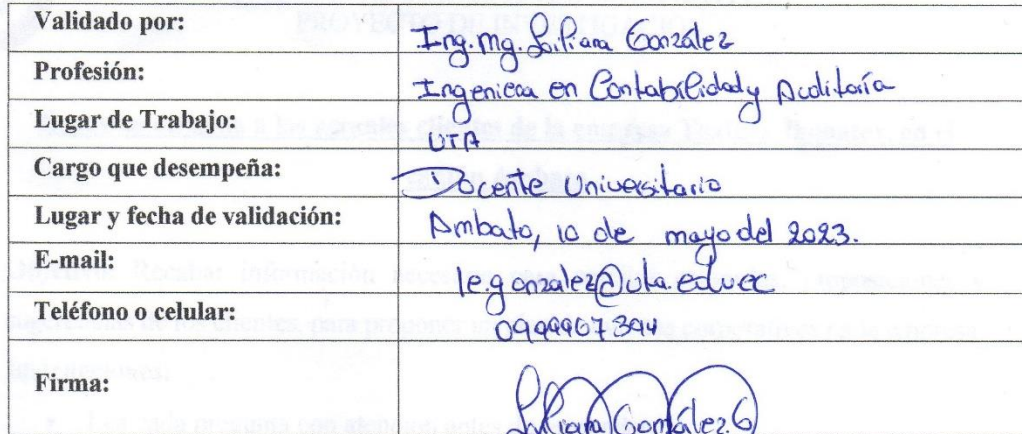 Validado por: Ing. Mg. Liliana González
Profesión: Ingeniera en Contabilidad y Auditoría
Lugar de Trabajo: UTA
Cargo que desempeña: Docente Universitario
Lugar y fecha de validación: Ambato, 10 de mayo del 2023.
E-mail: le.gonzalez@uta.edu.ec
Teléfono o celular: 0999907394
Firma: Liliana González G